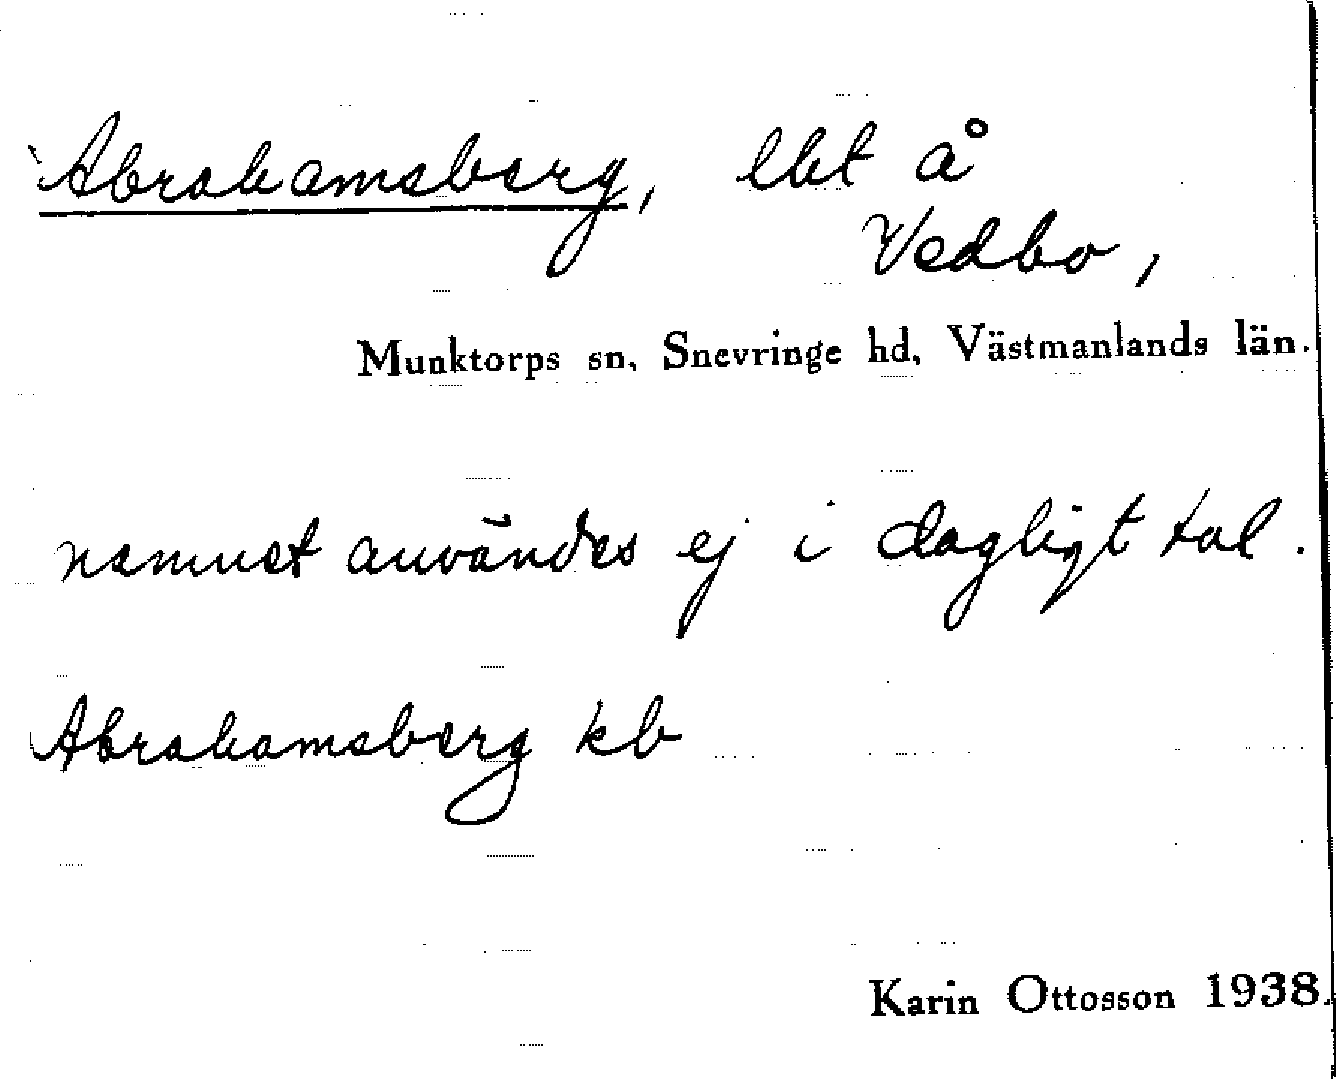 Abrahamsberg, lht å
Vedbo,
Munktorps sn, Snevringe hd, Västmanlands län.
namnet användes ej i dagligt tal.
Abrahamsberg kb
Karin Ottosson 1938.